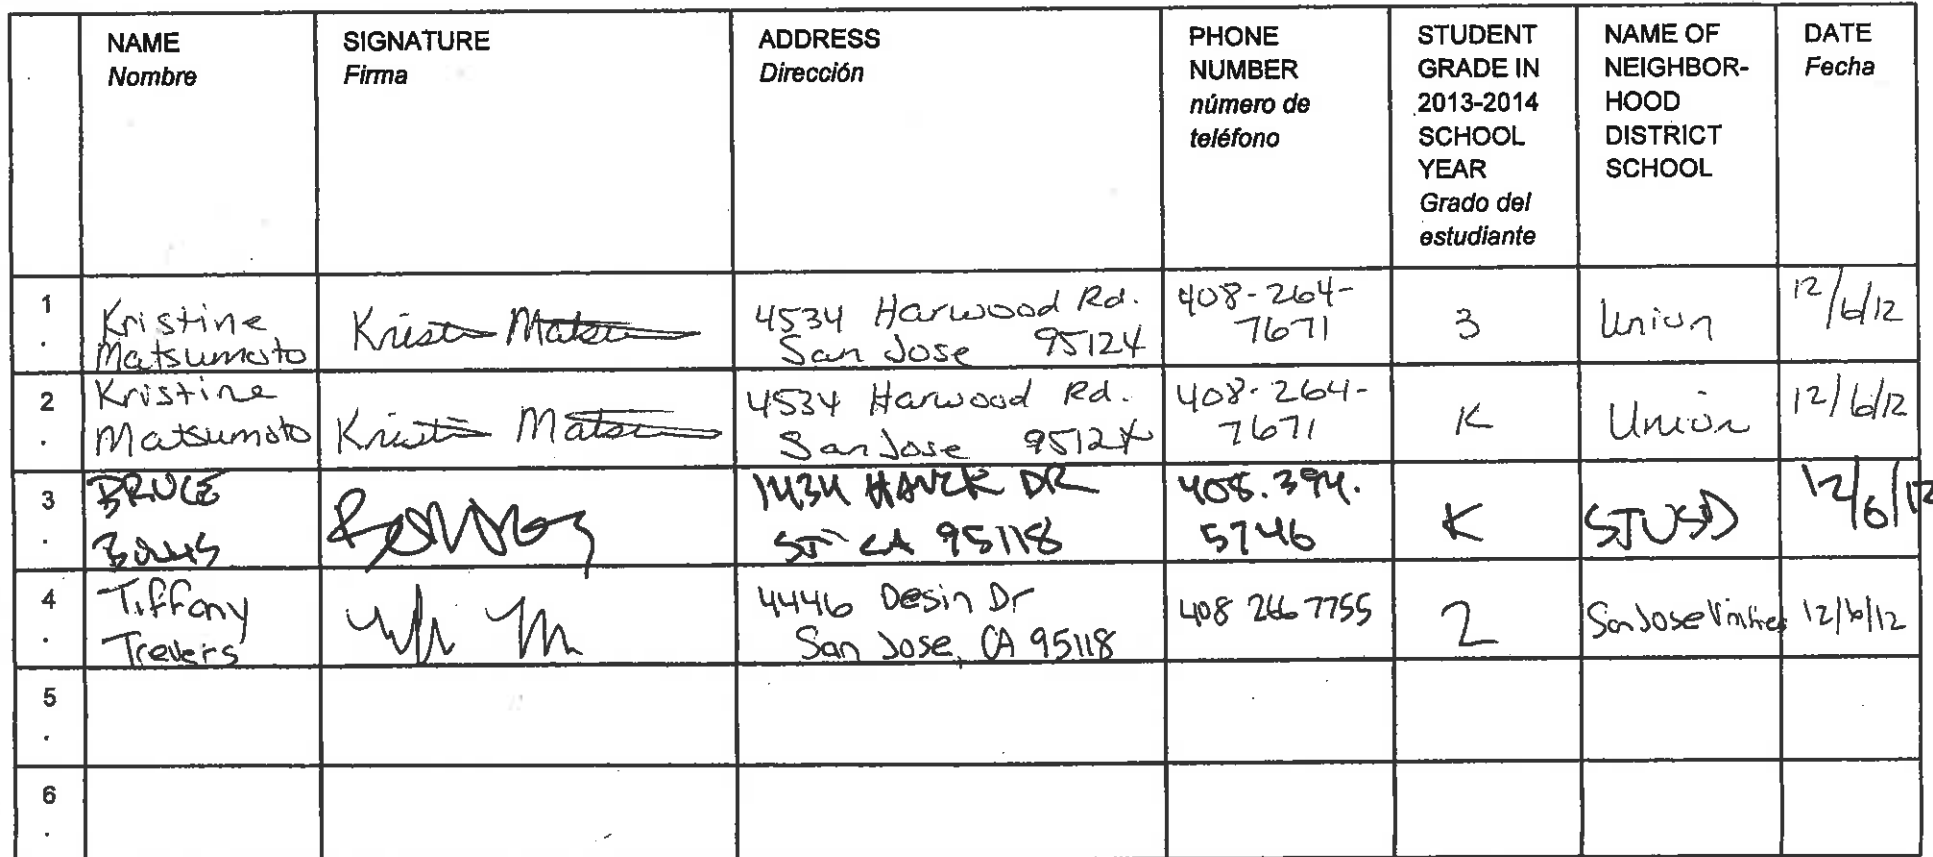 NAME
Nombre
SIGNATURE
Firma
ADDRESS
Dirección
PHONE
NUMBER
número de
teléfono
STUDENT
GRADE IN
2013-2014
SCHOOL
YEAR
Grado del
estudiante
NAME OF
NEIGHBOR-
HOOD
DISTRICT
SCHOOL
DATE
Fecha
1.
Kristine
Matsumoto
4534 Harwood Rd.
San Jose 95124
408-264-
7671
3
Union
12/6/12
2.
Kristine
Matsumoto
4534 Harwood Rd.
San Jose 95124
408-264-
7671
K
Union
12/6/12
3.
BRUCE
1434 DR
SJ CA 95118
408.394.
5746
K
SJUSD
12/6/12
4.
Tiffany
Trevers
4446 Desin Dr
San Jose, CA 95118
408 266 7755
2
San Jose
12/6/12
5.
6.